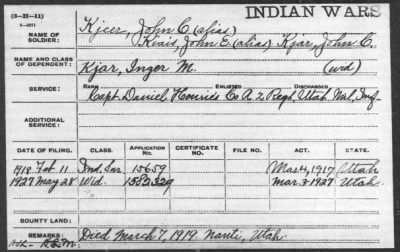 INDIAN WARS
(3-22-11)
NAME OF SOLDIER: Kjeer, John C (alias)
Kiar, John E. (alias) Kjar, John C.
NAME AND CLASS OF DEPENDENT: Kjar, Inger M. (wid)
SERVICE: RANK ENLISTED DISCHARGED
Capt. Daniel Henrie's Co A 2 Regt, Utah Mil, Inf
ADDITIONAL SERVICE:
DATE OF FILING. CLASS. APPLICATION NO. CERTIFICATE NO. FILE NO. ACT. STATE.
1918 Feb 11 Ind. Sur. 15659 Mar 4, 1917 Utah
1927 May 28 Wid. 1582329 Mar. 3-1927 Utah
BOUNTY LAND:
REMARKS: Died March 7, 1919. Manti, Utah.